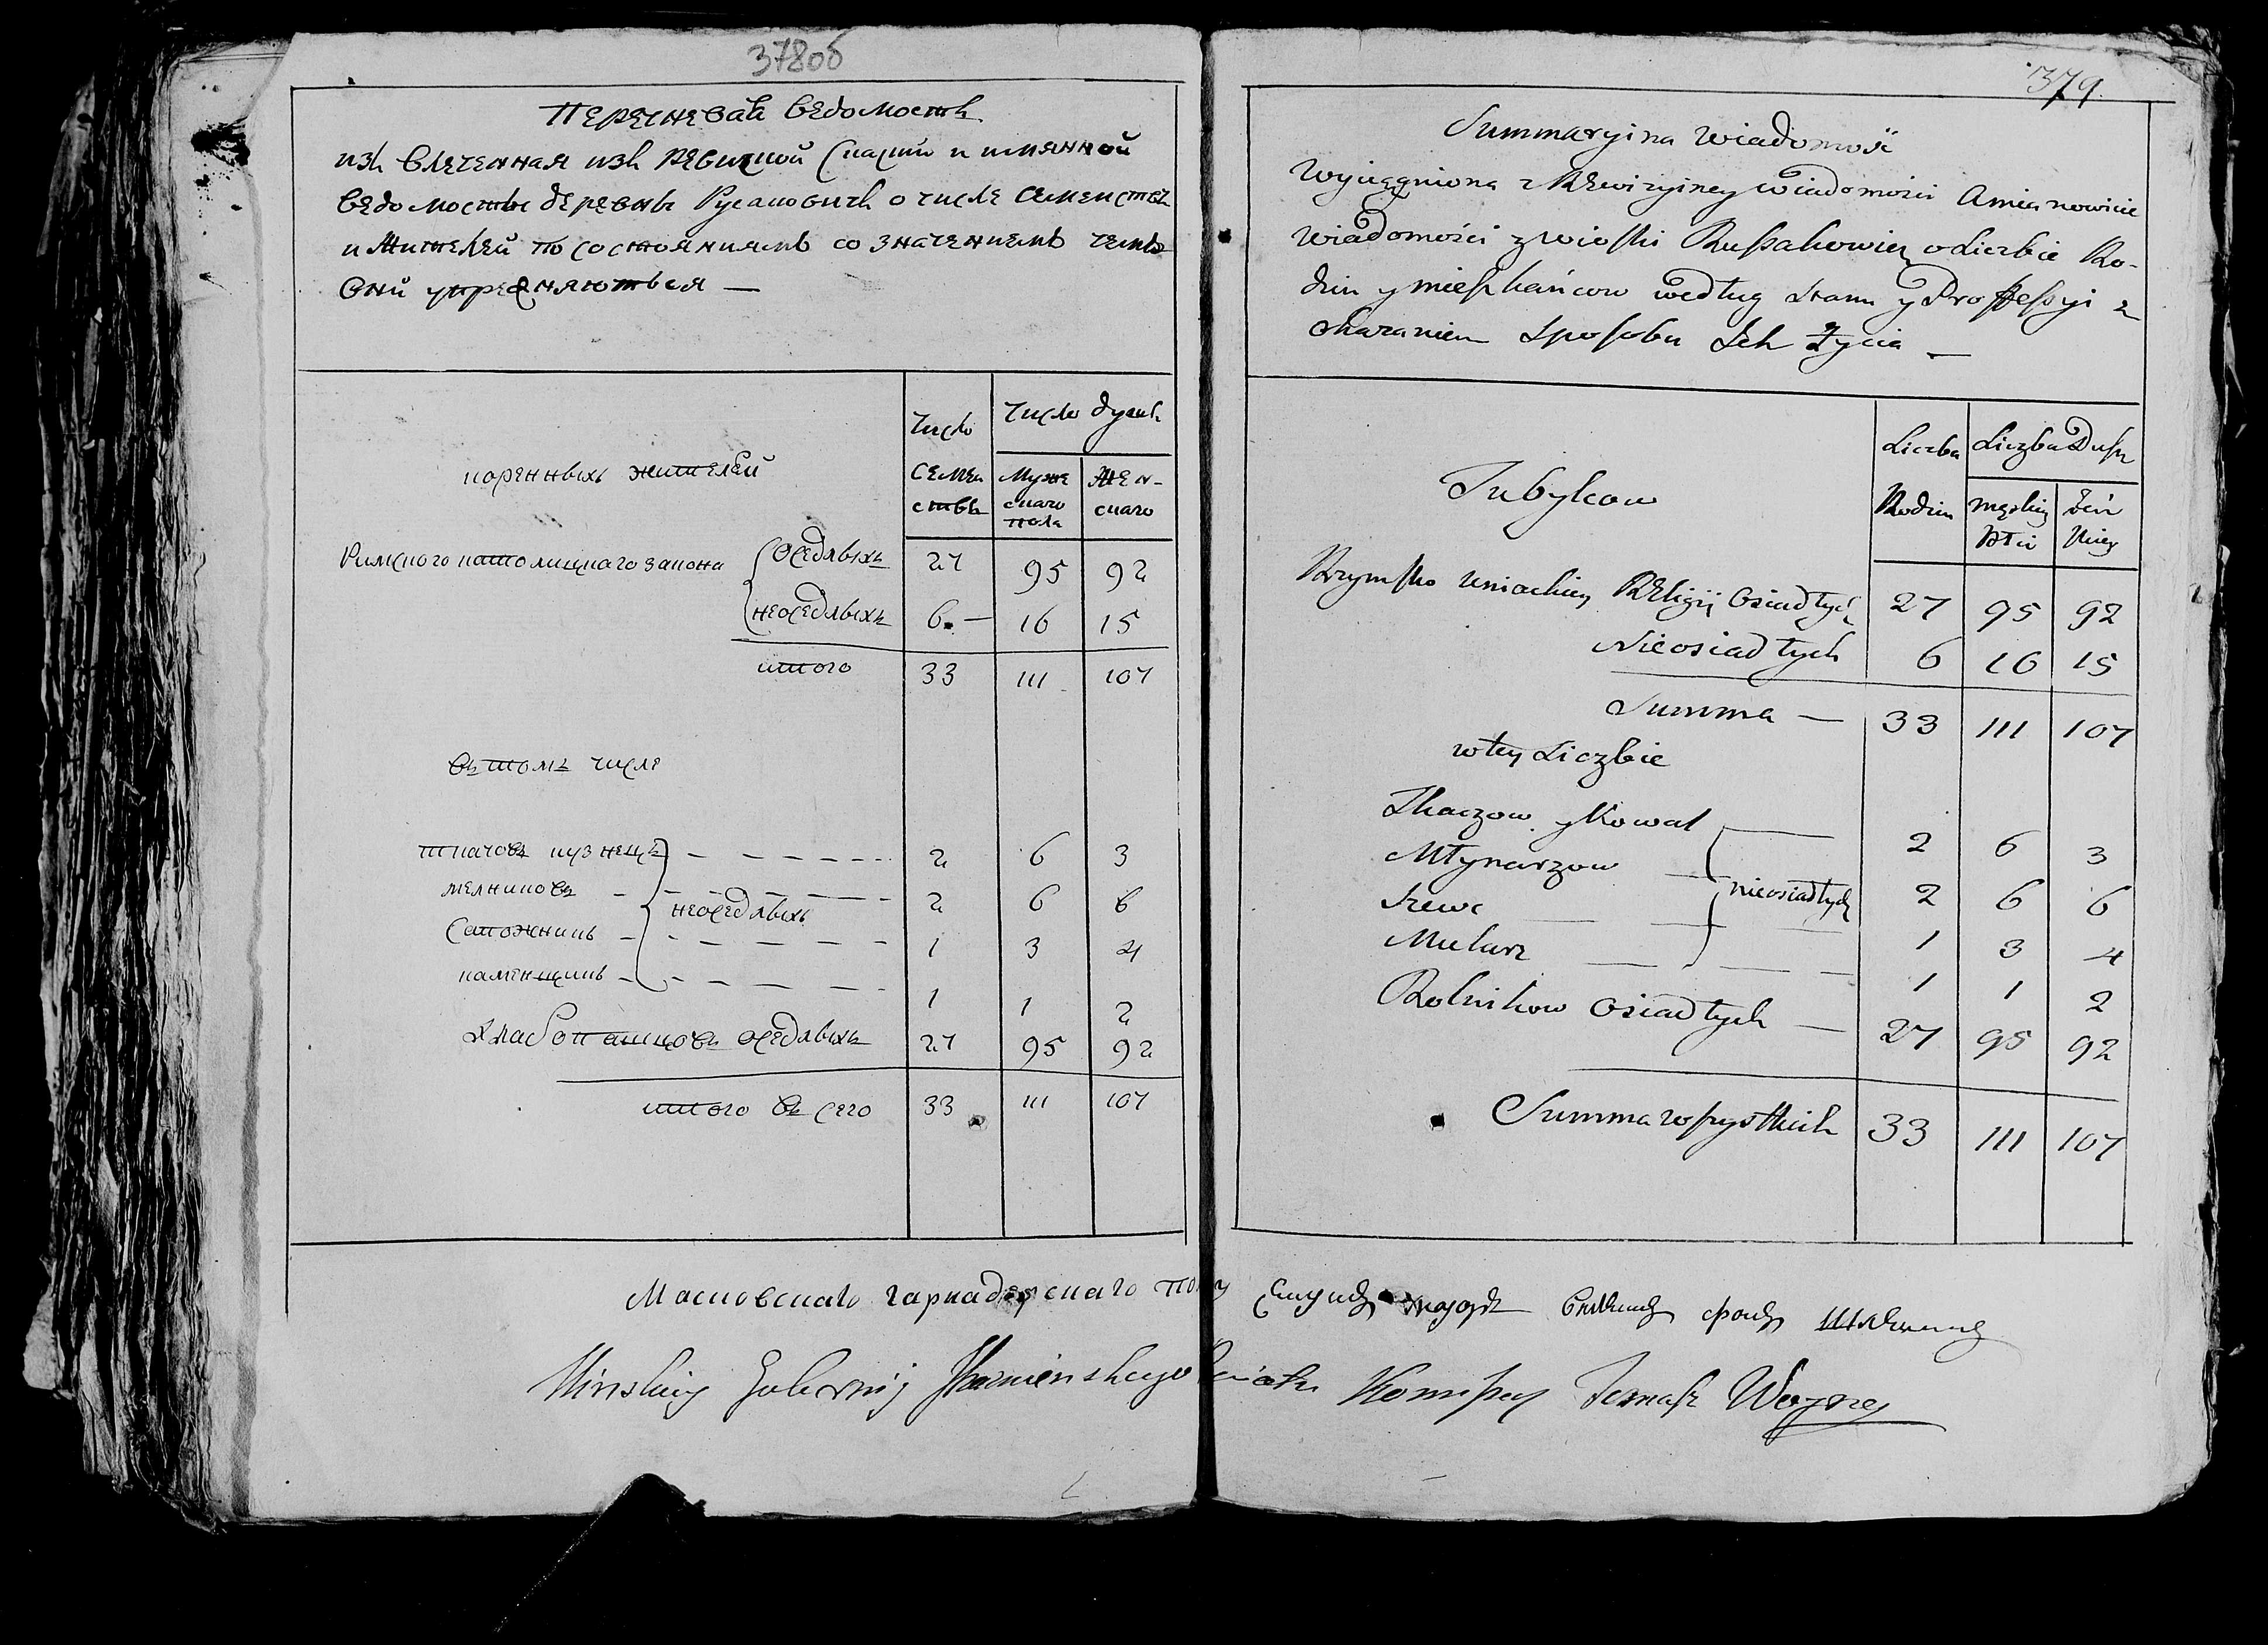 378об
Перечневая ведомость
изъ влеченная изъ ревиской скаски и имянной
ведомости деревнѣ Русаковичъ о числе семействъ
и жителей по состояниямъ со значениемъ чемъ
они упрежняються —
коренныхъ жителей
число семействъ
число душъ
мужескаго пола
женскаго
Римского католицкаго закона
оседлыхъ 27 95 92
неоседлыхъ 6 — 16 15
итого 33 111 107
въ томъ числе
ткачовъ кузнецъ 2 6 3
мелниковъ 2 6 6
неоседлыхъ
сапожникъ 1 3 4
каменщикъ 1 1 2
хлабопашцовъ оседлыхъ 27 95 92
итого въ сего 33 111 107
Масковскаго гарнадерскаго полку
379
Summaryina Wiadomość
Wyciągniona z Rewizyiney wiadomości Amianowicie
Wiadomości z wioski Rusakowicz o Liczbie Ro-
dzin y mieszkańcow według stanu y Proffessyi z
okazaniem sposobu Ich Życia —
Tubylcow
Liczba Rodzin
Liczba Dusz
męskiey płci
żeńskiey
Rzymsko uniackiey Religij Osiadłych 27 95 92
Nieosiadłych 6 16 15
Summa — 33 111 107
w tey Liczbie
Tkaczow y Kowal 2 6 3
Młynarzow 2 6 6
nieosiadłych
Szewc 1 3 4
Mularz 1 1 2
Rolnikow Osiadłych — 27 95 92
Summa wszystkich 33 111 107
Секундъ маіоръ фонъ
Minskiey Gubernij Ihumenskiego Powiatu Tomasz Woyney